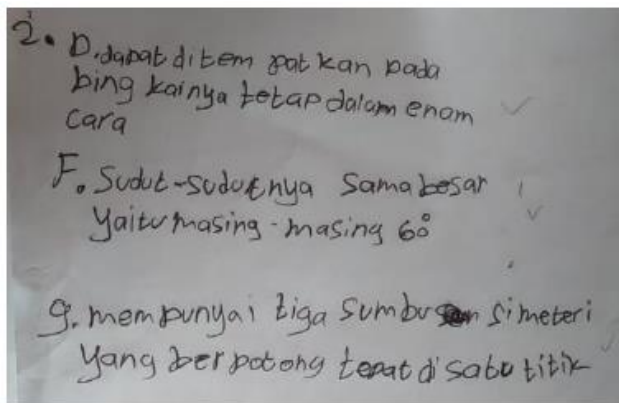 2. D. dapat ditempatkan pada
bing kainya tetap dalam enam
cara
F. Sudut-sudutnya sama besar
yaitu masing-masing 60°
g. mempunyai tiga sumbu simeteri
yang berpotong tepat di satu titik